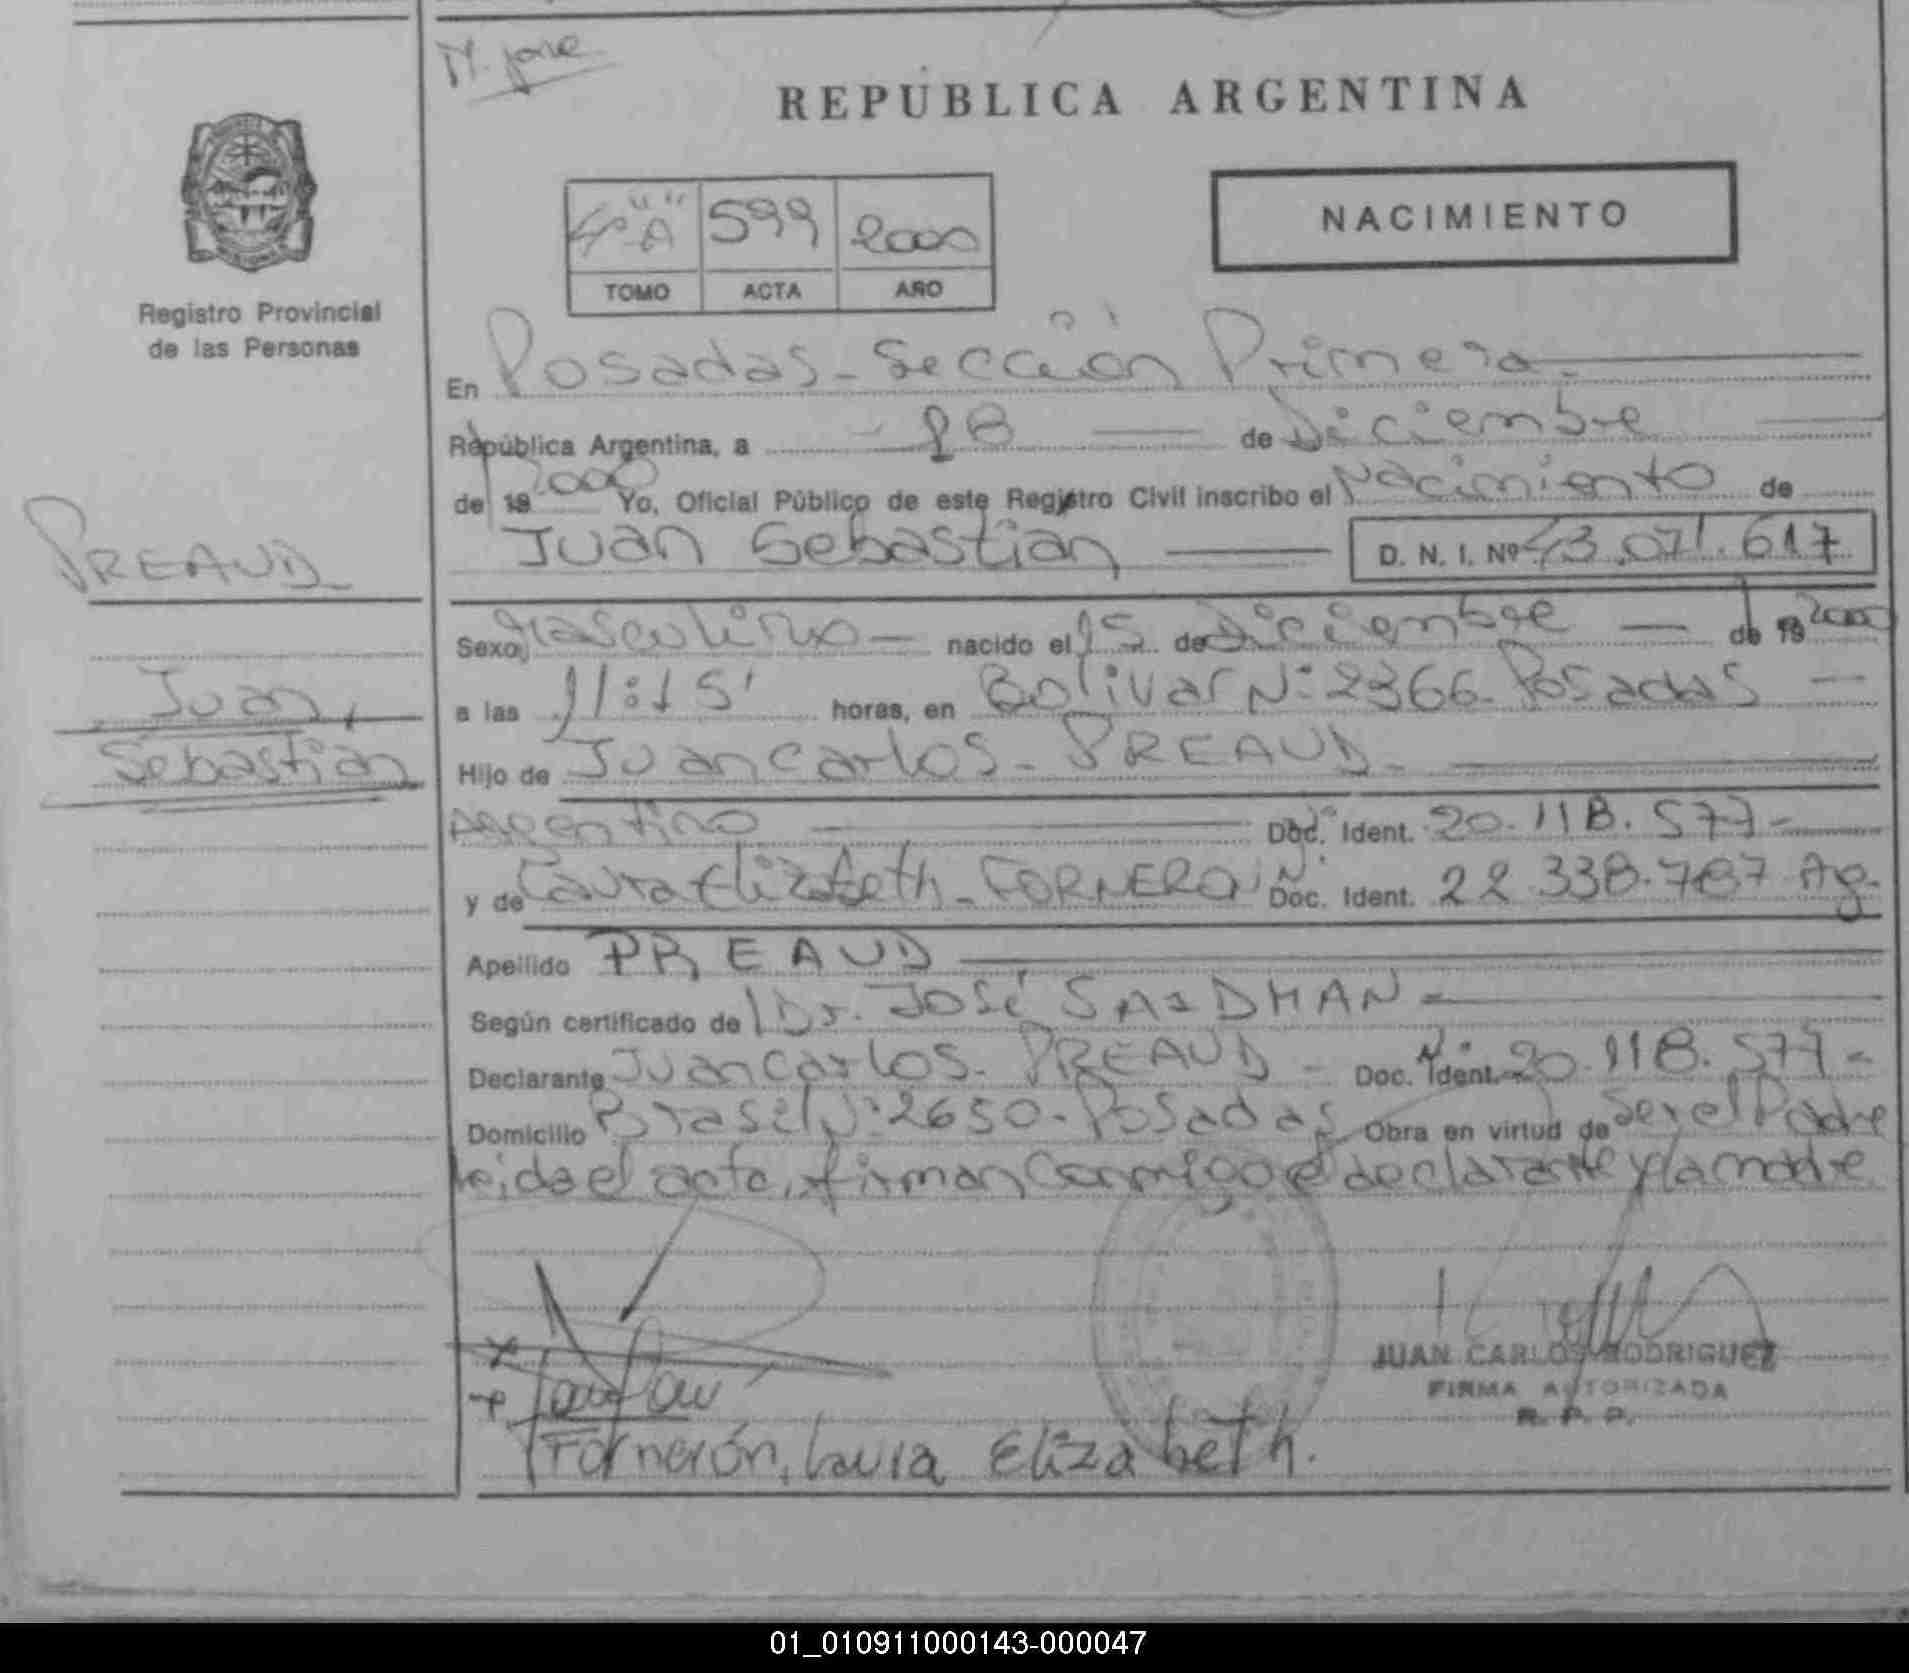 M. José
REPÚBLICA ARGENTINA
4º "A" 599 2000
TOMO ACTA AÑO
NACIMIENTO
Registro Provincial
de las Personas
En Posadas - Sección Primera -
República Argentina, a 18 de Diciembre
de 19 2000 Yo, Oficial Público de este Registro Civil inscribo el Nacimiento de
Juan Sebastian D. N. I. Nº 43.071.617
PREAUD
Juan,
Sebastián
Sexo Masculino nacido el 15 de Diciembre de 19 2000
a las 11:15' horas, en Bolivar Nº 2366 - Posadas
Hijo de Juan Carlos - PREAUD -
Argentino Doc. Ident. Nº 20.118.577 -
y de Laura Elizabeth - FORNERON Doc. Ident. Nº 22.338.787 Ag.
Apellido PREAUD
Según certificado de Dr. José SAIDMAN -
Declarante Juan Carlos - PREAUD - Doc. Ident. Nº 20.118.577 -
Domicilio Brasil Nº 2650 - Posadas Obra en virtud de Ser el Padre
leida el acta, firman conmigo el declarante y la madre
JUAN CARLOS RODRIGUEZ
FIRMA AUTORIZADA
R. P. P.
Fornerón, Laura Elizabeth.
01_010911000143-000047